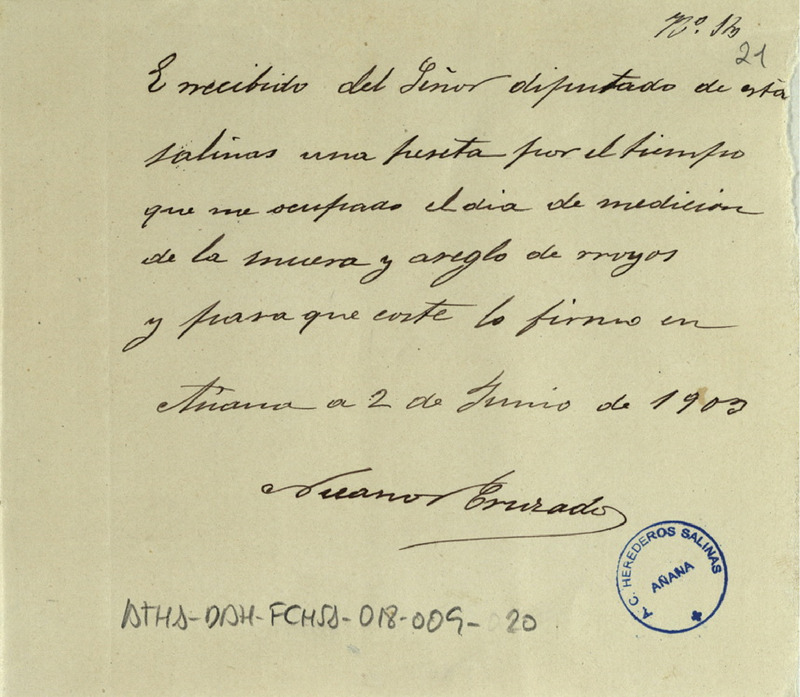 Nº.
21
E rrecibido del Señor diputado de esta
salinas una peseta por el tiempo
que me ocupado el dia de medicion
de la muera y areglo de rroyos
y para que coste lo firmo en
Añana a 2 de Junio de 1903
Nicanor Cruzado
A.C. HEREDEROS SALINAS
AÑANA
ATHA-DAH-FCHSA-018-009-020